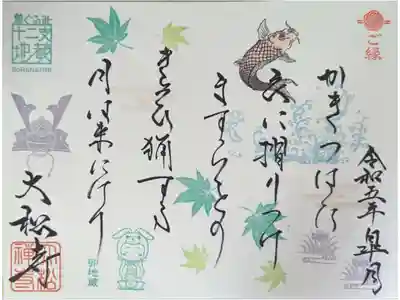 ご縁
令和五年 皐月
かきつはた
衣に摺りつけ
ますらをの
きそひ猟する
月は来にけり
十二支地蔵
卯地蔵